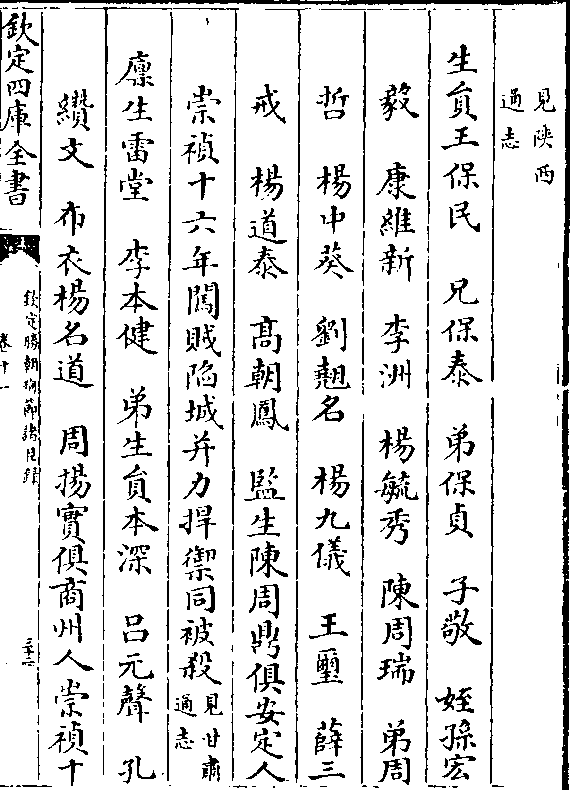 見陜西
通志
生員王保民　兄保泰　弟保貞　子敬　姪孫宏
毅　康維新　李洲　楊毓秀　陳周瑞　弟周
哲　楊中葵　劉翹名　楊九儀　王璽　薛三
戒　楊道泰　高朝鳳　監生陳周鼎俱安定人
崇禎十六年闖賊陷城并力捍禦同被殺見甘肅
通志
廪生雷堂　李本健　弟生員本深　呂元聲　孔
纘文　布衣楊名道　周揚實俱商州人崇禎十
欽定四庫全書
欽定勝朝殉節諸臣錄
卷十一
三十二